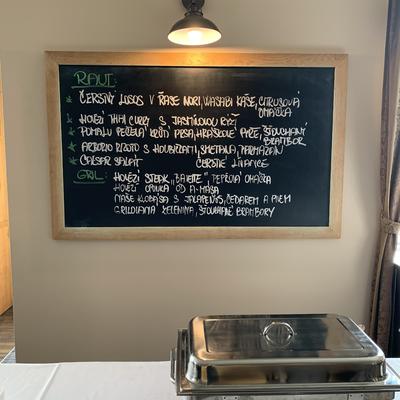 RAUT:
* ČERSTVÝ LOSOS V ŘASE NORI, WASABI KAŠE, CITRUSOVÁ
OMÁČKA
* HOVĚZÍ THAI CURRY S JASMÍNOVOU RÝŽÍ
* POMALU PEČENÁ KRŮTÍ PRSA, HRÁŠKOVÉ PYRÉ, ŠŤOUCHANÝ
BRAMBOR
* ARBORIO RIZOTO S HOUBIČKAMI, SMETANA, PARMAZÁN
* CAESAR SALÁT ČERSTVÉ LÍVANCE
GRIL:
HOVĚZÍ STEAK "BAVETTE" PEPŘOVÁ OMÁČKA
HOVĚZÍ OD A-MASA
NAŠE KLOBÁSA S JALAPEÑOS, ČEDAREM A PIVEM
GRILOVANÁ ZELENINA, ŠŤOUCHANÉ BRAMBORY